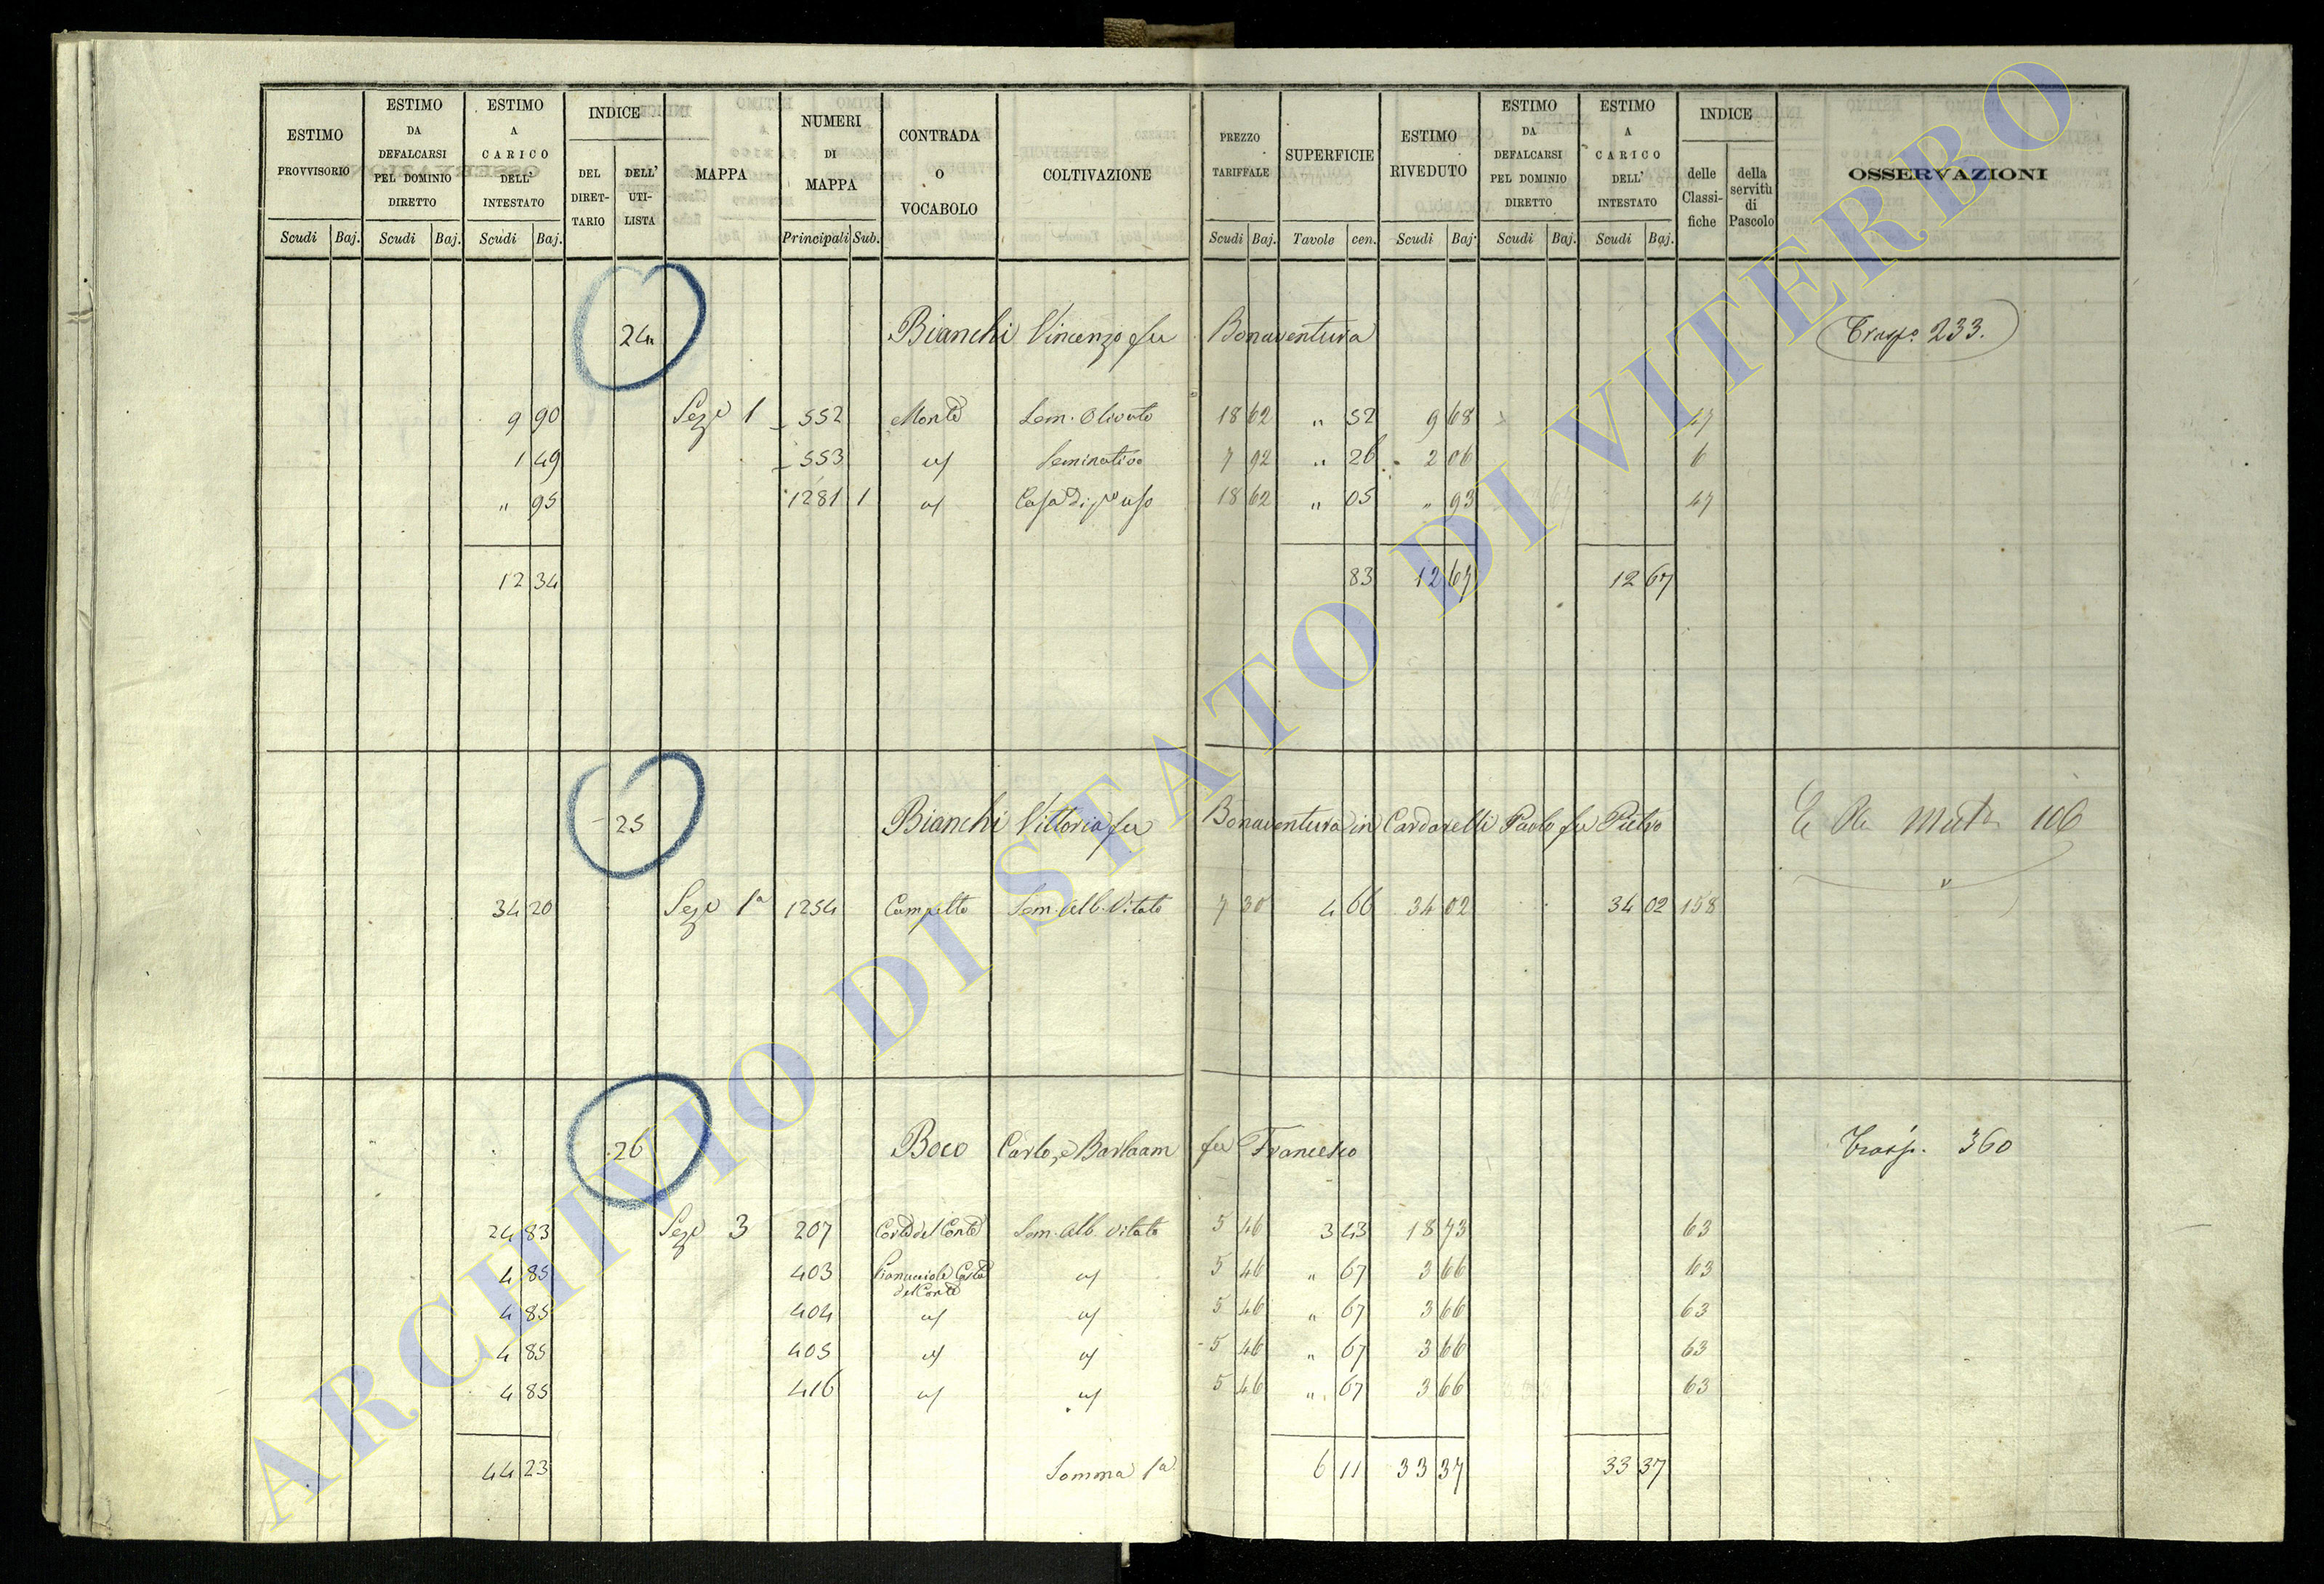 ESTIMO PROVVISORIO | ESTIMO DA DEFALCARSI PEL DOMINIO DIRETTO | ESTIMO A CARICO DELL' INTESTATO | INDICE DEL DIRET-TARIO | DELL' UTI-LISTA | MAPPA | NUMERI DI MAPPA | CONTRADA O VOCABOLO | COLTIVAZIONE | PREZZO TARIFFALE | SUPERFICIE | ESTIMO RIVEDUTO | ESTIMO DA DEFALCARSI PEL DOMINIO DIRETTO | ESTIMO A CARICO DELL' INTESTATO | INDICE delle Classi-fiche | della servitù di Pascolo | OSSERVAZIONI
Scudi Baj. Scudi Baj. Scudi Baj. Principali Sub. Scudi Baj. Tavole cen. Scudi Baj. Scudi Baj. Scudi Baj.
24 Bianchi Vincenzo fu Bonaventura Trasp.o 233.
9 90 Sez.e 1 552 Monte Sem. Olivato 18 62 " 52 9 68 47
1 49 553 " Seminativo 7 92 " 26 2 06 6
" 95 1281 1 " Casa di p.o uso 18 62 " 05 " 93 47
12 34 83 12 67 12 67
25 Bianchi Vittoria fu Bonaventura in Cardarelli Paolo fu Pietro 106
34 20 Sez.e 1a 1254 Campetto Sem. Alb. Vitato 7 30 4 66 34 02 34 02 158
26 Boco Carlo, e Barlaam fu Francesco Trasp. 360
24 83 Sez.e 3 207 Corte del Conte Sem. Alb. Vitato 5 46 3 43 18 73 63
4 85 403 del Conte 5 46 " 67 3 66 63
4 85 404 5 46 " 67 3 66 63
4 85 405 5 46 " 67 3 66 63
4 85 416 5 46 " 67 3 66 63
44 23 Somma 1a 6 11 33 37 33 37
ARCHIVIO DI STATO DI VITERBO